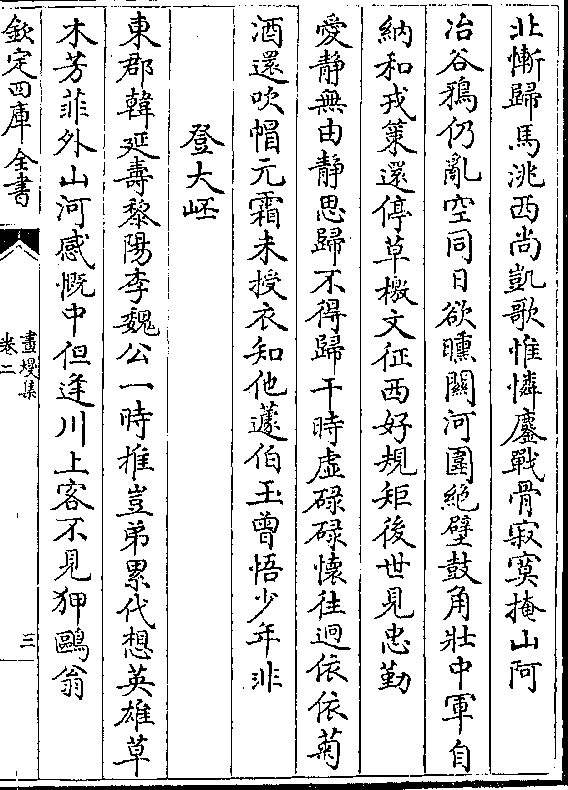 北慚歸馬洮西尚凱歌惟憐鏖戰骨寂寞掩山阿
冶谷鴉仍亂空同日欲曛關河圍絶壁鼓角壯中軍自
納和戎策還停草檄文征西好規矩後世見忠勤
愛静無由静思歸不得歸干時虚碌碌懐往迥依依菊
酒還吹帽元霜未授衣知他蘧伯玉曾悟少年非
登大岯
東郡韓延壽黎陽李魏公一時推豈弟累代想英雄草
木芳菲外山河感慨中但逢川上客不見狎鷗翁
欽定四庫全書
畫墁集
卷二
三